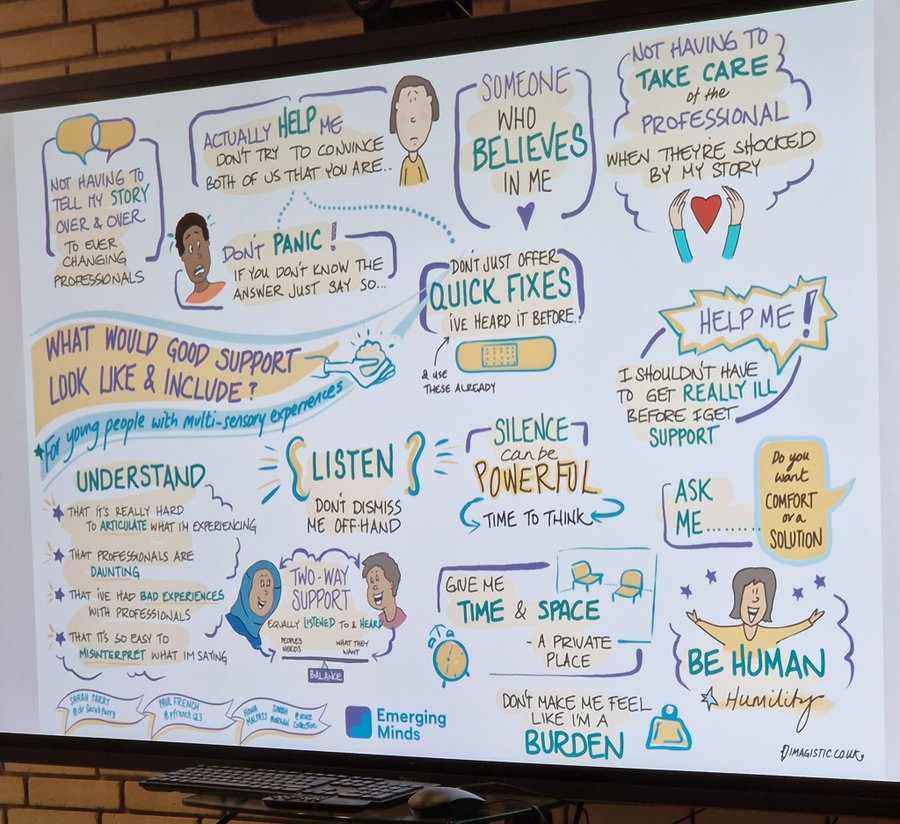 NOT HAVING TO
TELL MY STORY
OVER & OVER
TO EVER
CHANGING
PROFESSIONALS
ACTUALLY HELP ME
DON'T TRY TO CONVINCE
BOTH OF US THAT YOU ARE..
DON'T PANIC!
IF YOU DON'T KNOW THE
ANSWER JUST SAY SO...
SOMEONE
WHO
BELIEVES
IN ME
NOT HAVING TO
TAKE CARE
of the
PROFESSIONAL
WHEN THEY'RE SHOCKED
BY MY STORY
DON'T JUST OFFER
QUICK FIXES
I'VE HEARD IT BEFORE..
& USE
THESE ALREADY
HELP ME!
I SHOULDN'T HAVE
TO GET REALLY ILL
BEFORE I GET
SUPPORT
WHAT WOULD GOOD SUPPORT
LOOK LIKE & INCLUDE?
For young people with multi-sensory experiences
UNDERSTAND
THAT IT'S REALLY HARD
TO ARTICULATE WHAT I'M EXPERIENCING
THAT PROFESSIONALS ARE
DAUNTING
THAT I'VE HAD BAD EXPERIENCES
WITH PROFESSIONALS
THAT IT'S SO EASY TO
MISINTERPRET WHAT I'M SAYING
LISTEN
DON'T DISMISS
ME OFF-HAND
SILENCE
can be
POWERFUL
TIME TO THINK
ASK
ME........
Do you
want
COMFORT
or a
SOLUTION
TWO-WAY
SUPPORT
EQUALLY LISTENED TO & HEARD
PEOPLES
NEEDS
WHAT THEY
WANT
BALANCE
GIVE ME
TIME & SPACE
- A PRIVATE
PLACE
BE HUMAN
Humility
DON'T MAKE ME FEEL
LIKE I'M A
BURDEN
SARAH PARRY
@dr Sarahparry
PAUL FRENCH
@pfrench123
FIONA
MALPASS
SARAH
@voice
Collective
Emerging
Minds
IMAGISTIC.CO.UK